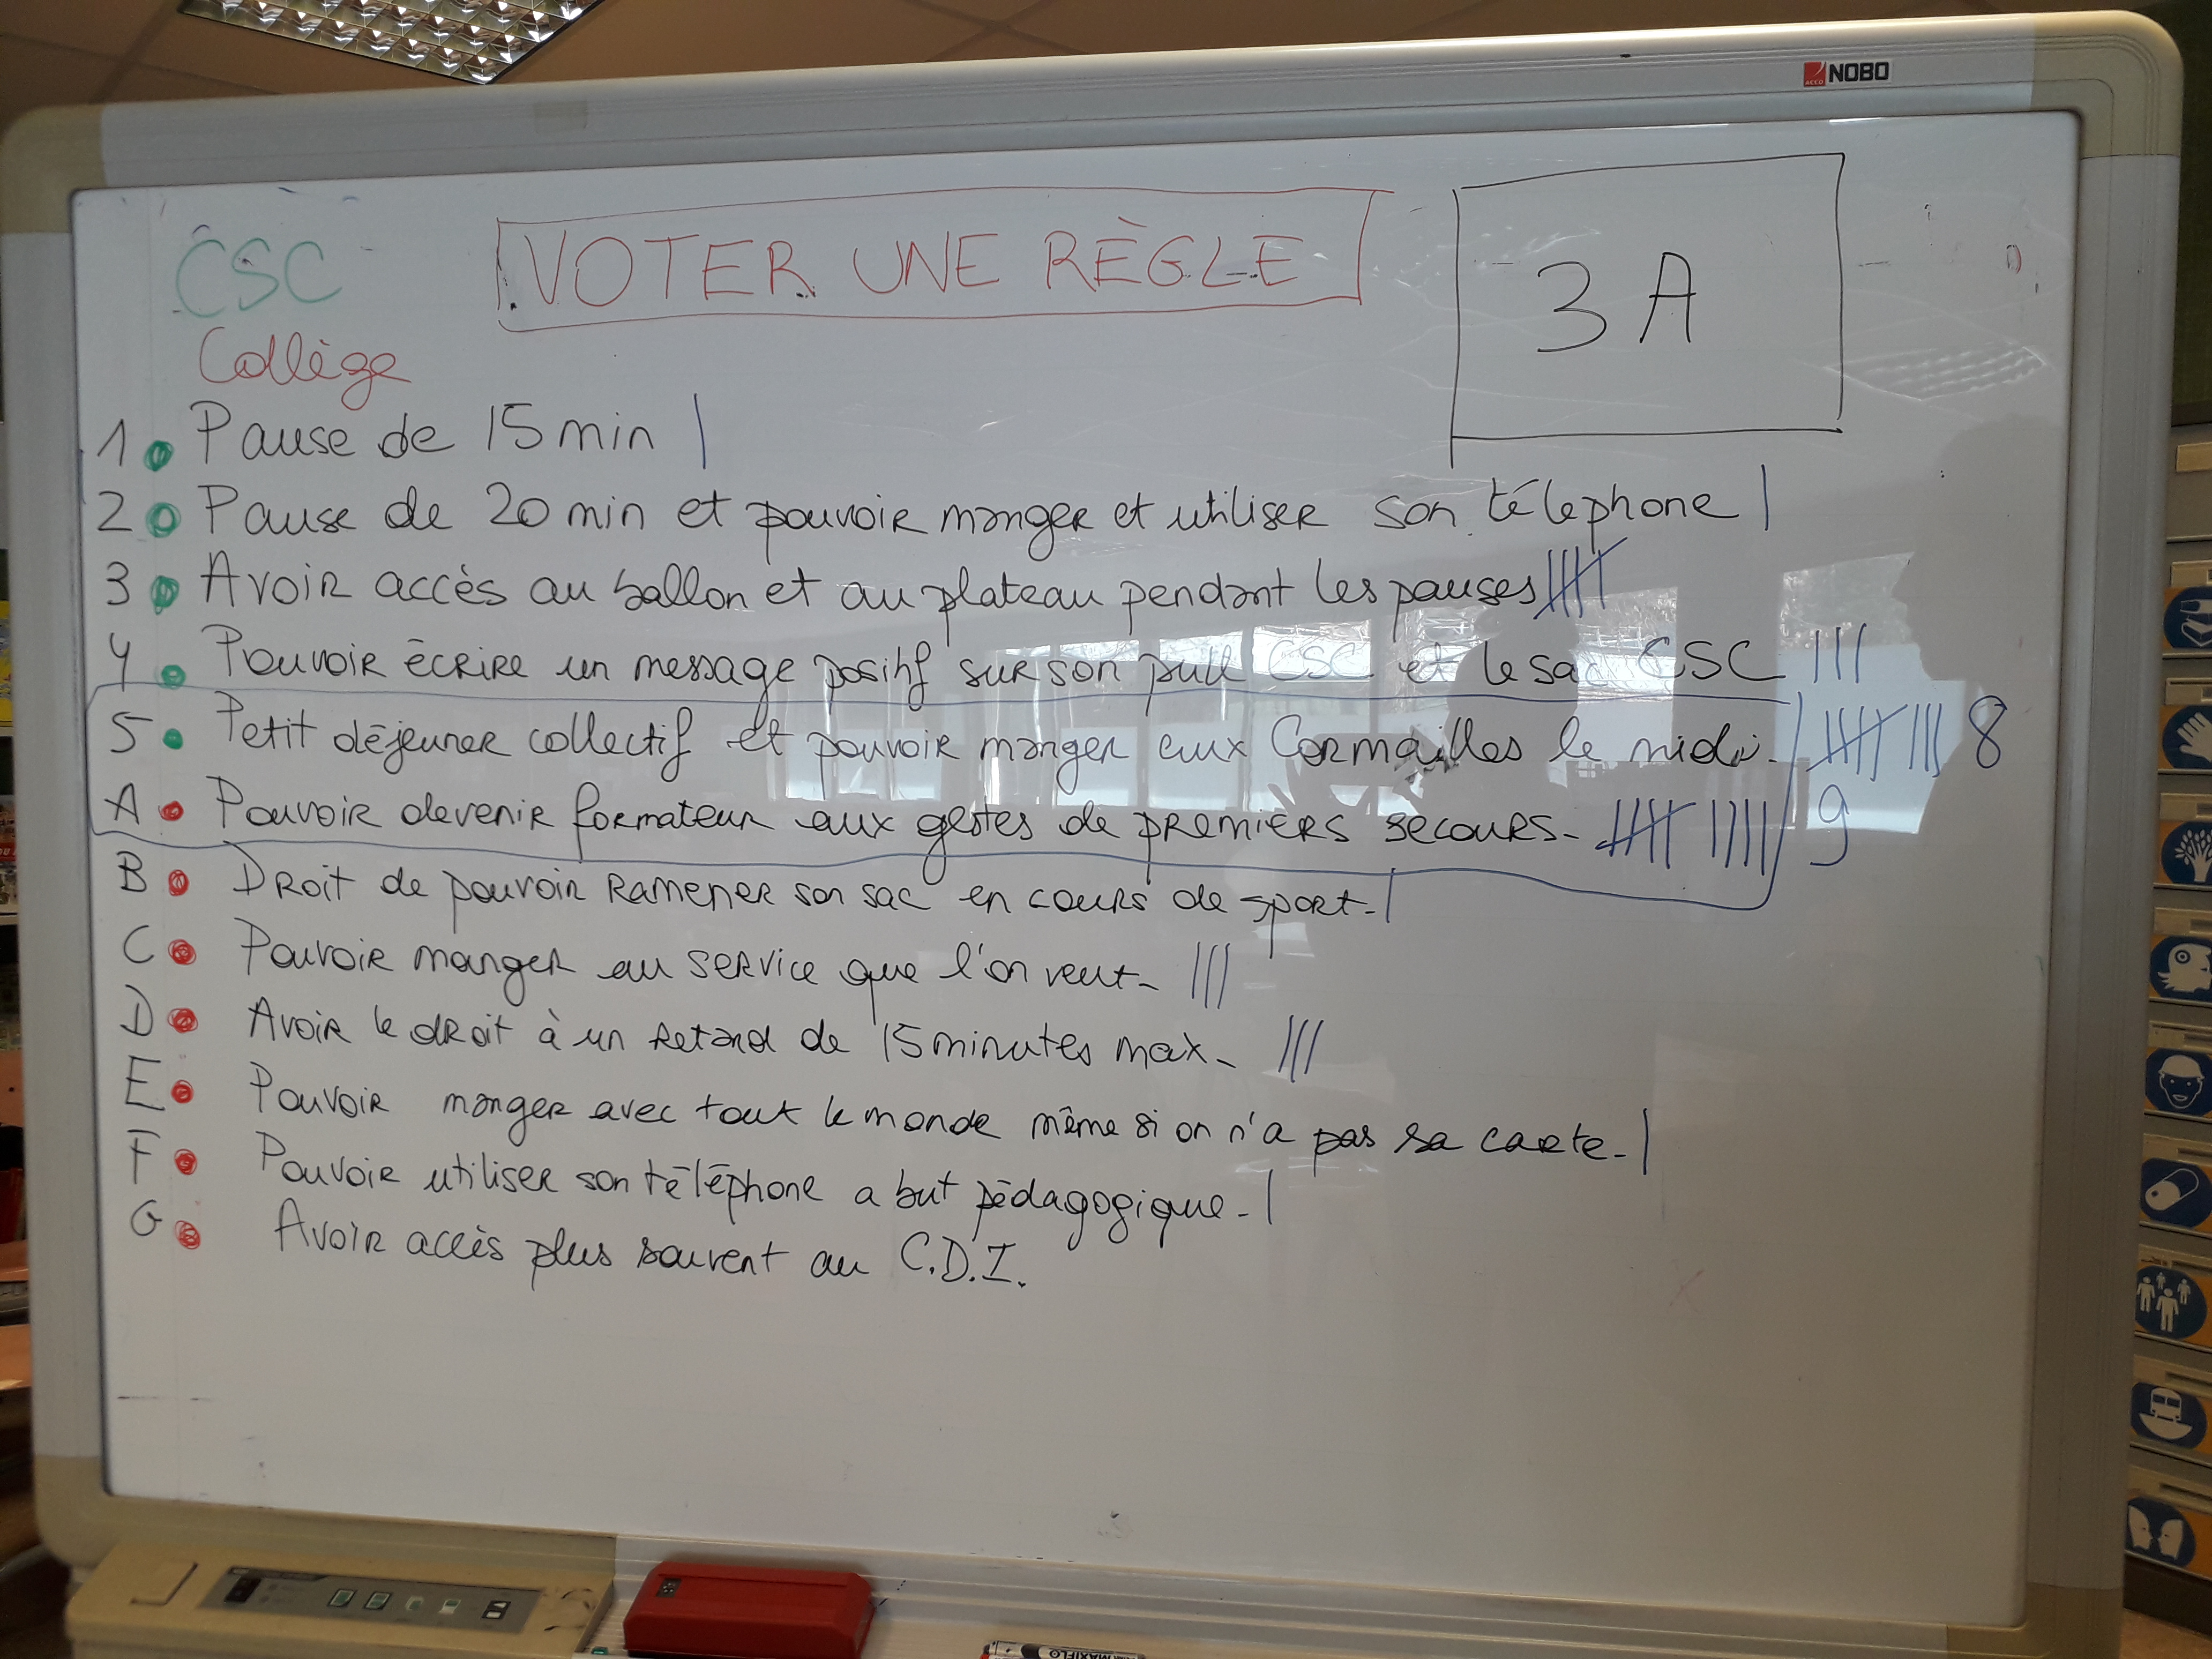 ACCO NOBO
CSC
VOTER UNE RÈGLE
3 A
Collège
1 • Pause de 15 min |
2 • Pause de 20 min et pouvoir manger et utiliser son téléphone |
3 • Avoir accès au ballon et au plateau pendant les pauses ||||/
4 • Pouvoir écrire un message positif sur son pull CSC et le sac CSC |||
5 • Petit déjeuner collectif et pouvoir manger aux Cormailles le midi. ||||/ ||| 8
A • Pouvoir devenir formateur aux gestes de premiers secours. ||||/ |||| 9
B • Droit de pouvoir ramener son sac en cours de sport. |
C • Pouvoir manger au service que l'on veut. |||
D • Avoir le droit à un retard de 15 minutes max. |||
E • Pouvoir manger avec tout le monde même si on n'a pas sa carte. |
F • Pouvoir utiliser son téléphone a but pédagogique. |
G • Avoir accès plus souvent au C.D.I.
MAXIFLO